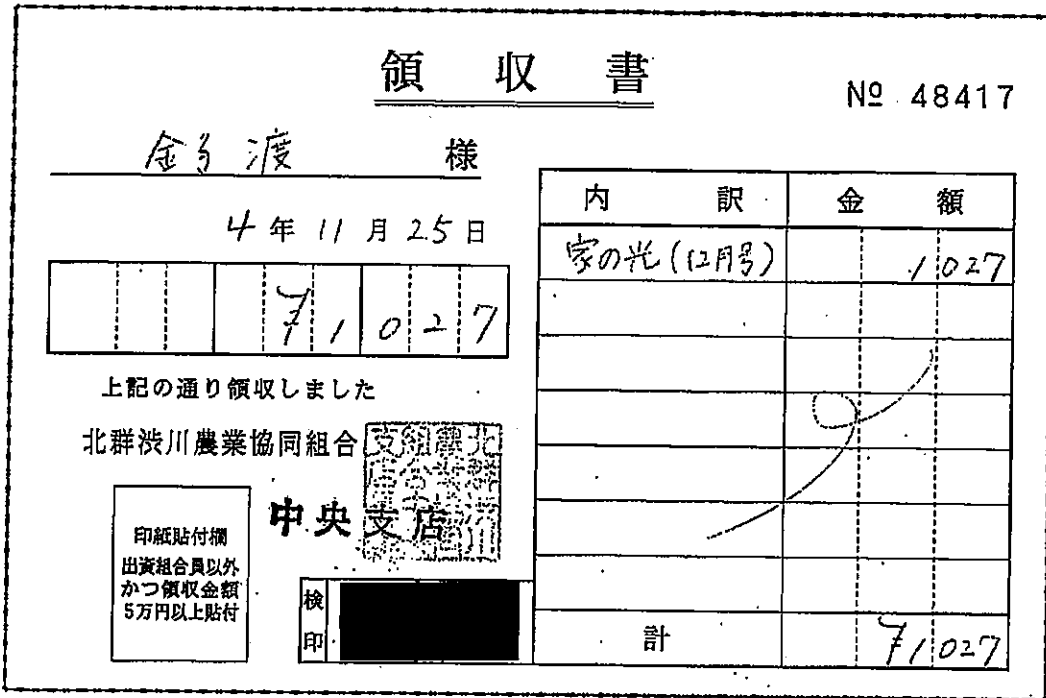 領収書
№ 48417
金子 渡 様
4年11月25日
¥1027
上記の通り領収しました
北群渋川農業協同組合
中央支店
印紙貼付欄
出資組合員以外
かつ領収金額
5万円以上貼付
検印
内訳 金額
家の光(12月号) 1027
計 ¥1027